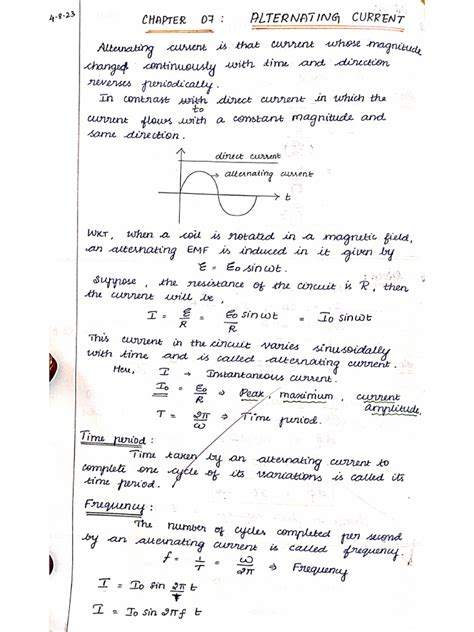 4-8-23
CHAPTER 07 : ALTERNATING CURRENT
Alternating current is that current whose magnitude
changed continuously with time and direction
reverses periodically.
In contrast with to direct current in which the
current flows with a constant magnitude and
same direction.
direct current
alternating current
t
WKT, when a coil is rotated in a magnetic field,
an alternating EMF is induced in it given by
ε = ε0 sinωt.
Suppose, the resistance of the circuit is R, then
the current will be,
I = ε/R = ε0/R sinωt = I0 sinωt
This current in the circuit varies sinusoidally
with time and is called alternating current.
Here, I → Instantaneous current.
I0 = ε0/R ⇒ Peak, maximum, current
amplitude.
T = 2π/ω ⇒ Time period.
Time period :
Time taken by an alternating current to
complete one cycle of its variations is called its
time period.
Frequency :
The number of cycles completed per second
by an alternating current is called frequency.
f = 1/T = ω/2π ⇒ Frequency
I = I0 sin 2π/T t
I = I0 sin 2πf t